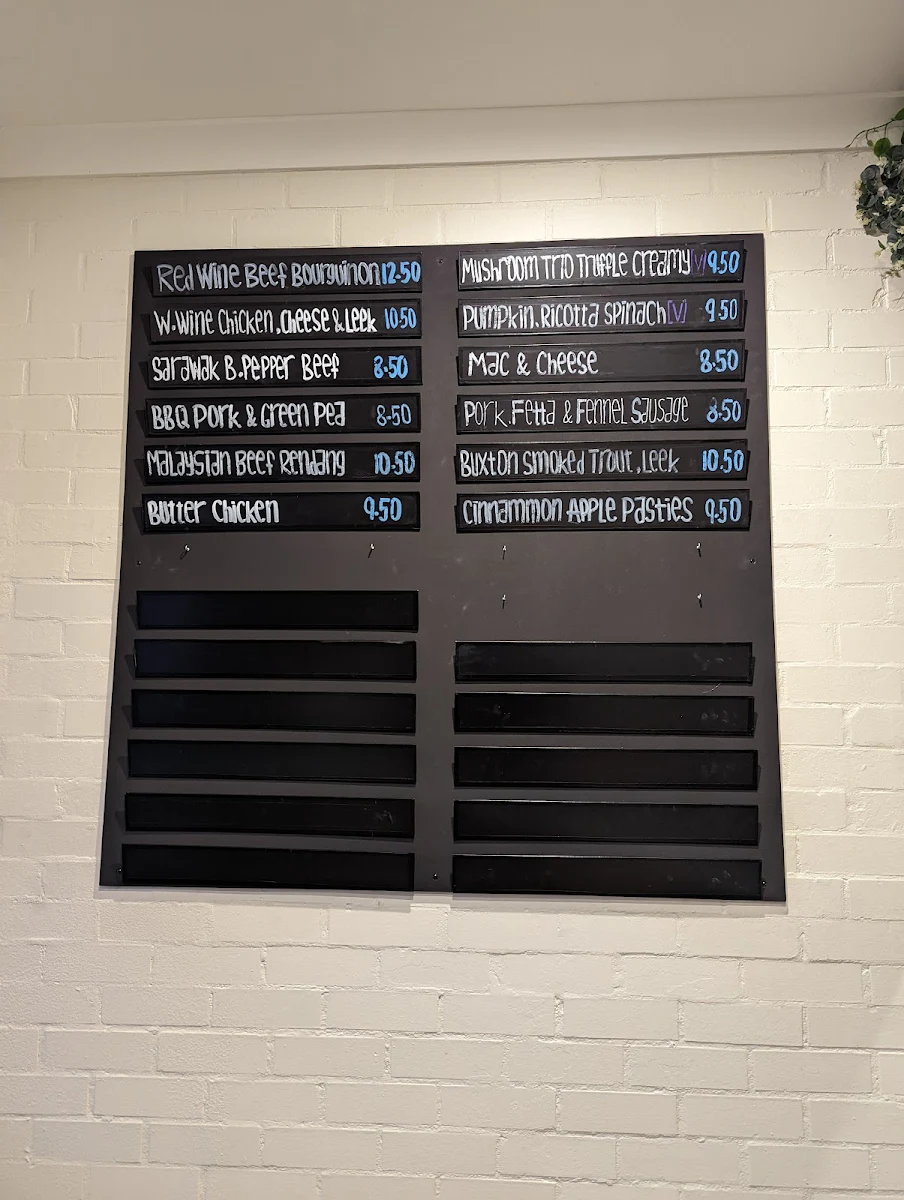 Red Wine Beef Bourguinon 12.50
W.Wine Chicken, Cheese & Leek 10.50
Sarawak B.Pepper Beef 8.50
BBQ Pork & Green Pea 8.50
Malaysian Beef Rendang 10.50
Butter Chicken 9.50
Mushroom Trio Truffle Creamy [V] 9.50
Pumpkin. Ricotta Spinach [V] 9.50
Mac & Cheese 8.50
Pork. Fetta & Fennel Sausage 8.50
Buxton Smoked Trout, Leek 10.50
Cinnammon Apple Pasties 9.50